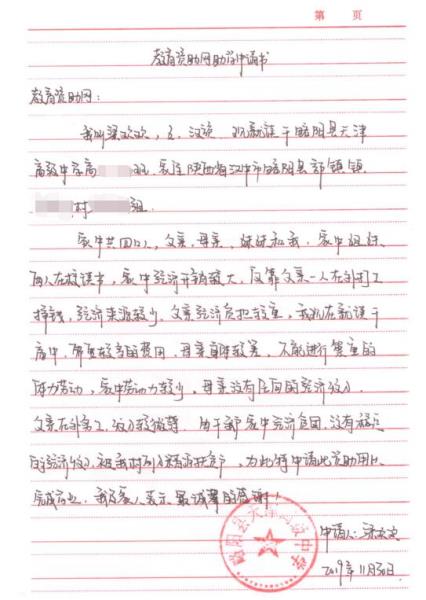 第 页
教育资助网助学申请书
教育资助网：
我叫梁欢欢，女，汉族，现就读于略阳县天津
高级中学高 班，家住陕西省汉中市略阳县 镇
村 组。
家中共四口人，父亲、母亲、妹妹和我，家中姐妹
两人在校读书，家中经济开销较大，仅靠父亲一人在外打工
挣钱，经济来源较少，父亲经济负担较重，我现在就读于
高中，需要较多的费用，母亲身体较差，不能进行繁重的
体力劳动，家中劳动力较少，母亲没有 的经济收入，
父亲在外务工，收入较微薄。由于我家中经济危困，没有稳定
的经济收入，被我村列入精准扶贫户，为此特申请此资助用以
完成学业，我及家人表示最诚挚的感谢！
申请人：梁欢欢
2019年11月30日.
略阳县天津高级中学